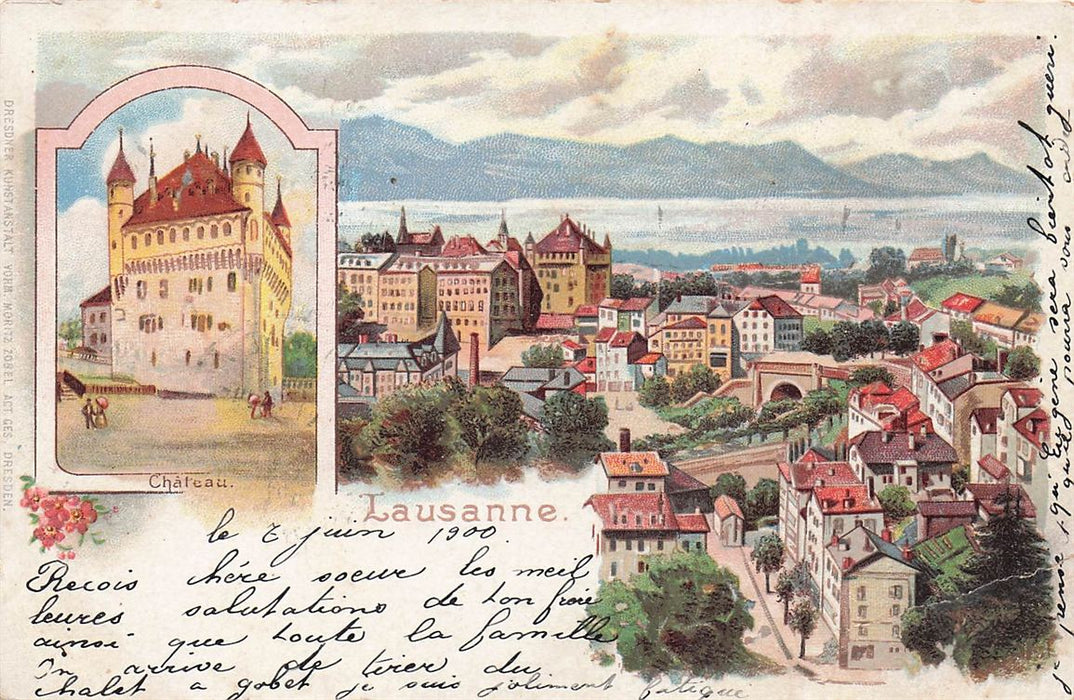 DRESDNER KUNSTANSTALT VORM. MORITZ ZOBEL ACT. GES. DRESDEN.
Château.
Lausanne.
le 7 juin 1900.
Recois chére soeur les meil
leures salutations de ton frère
ainsi que toute la famille
On arrive de tirer du
chalet a gobet je suis joliment fatigue
je pense qu'Eugéne sera bientot gueri.
qu'il pourra vous